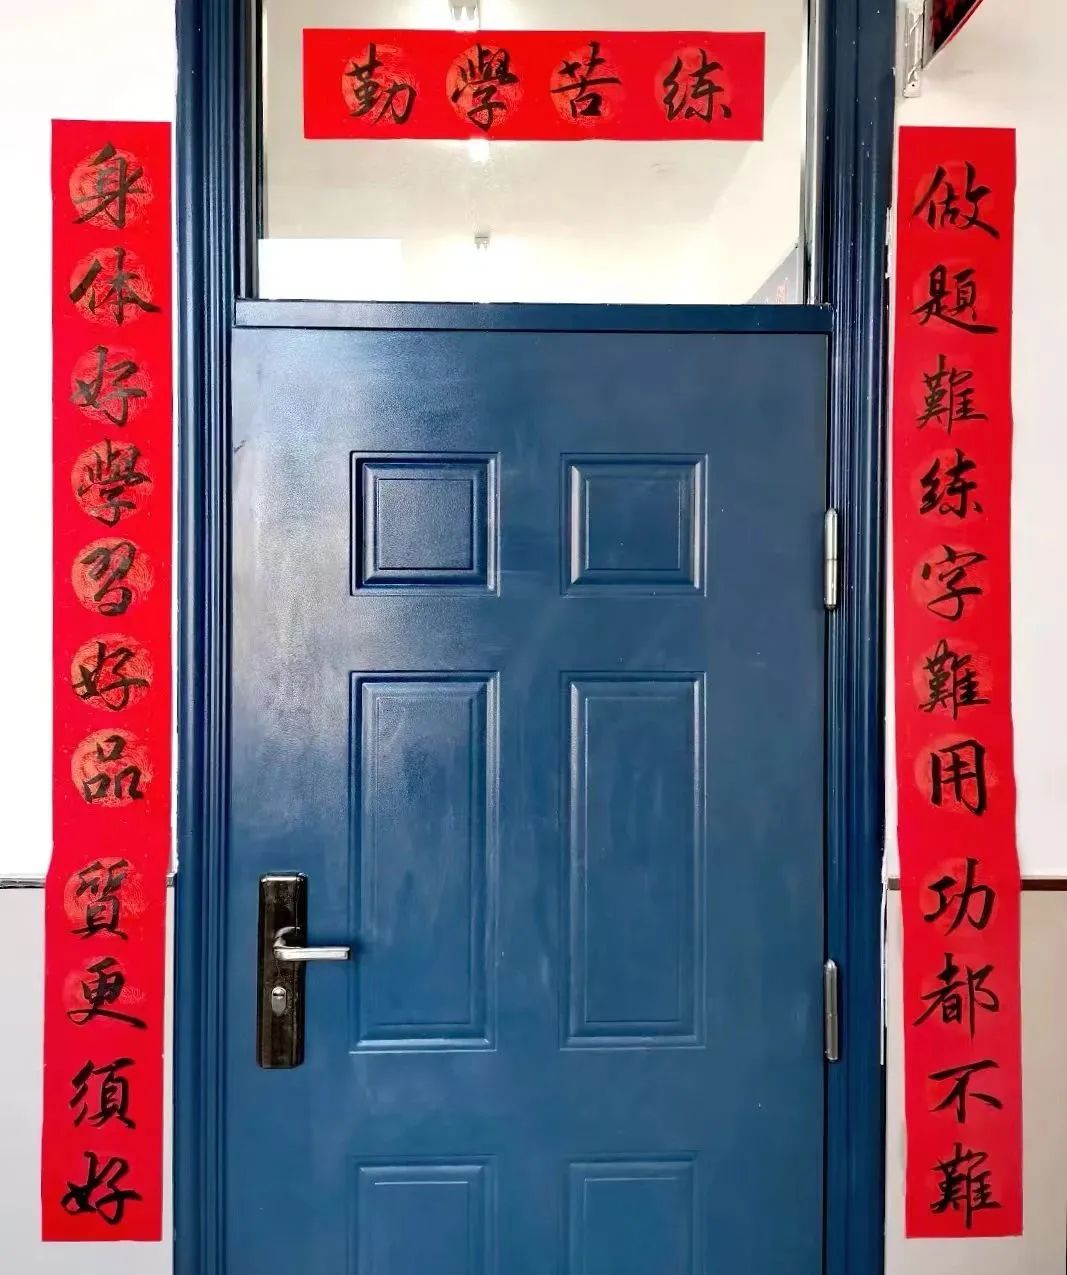 勤學苦练
身体好學習好品質更須好
做題難练字難用功都不難